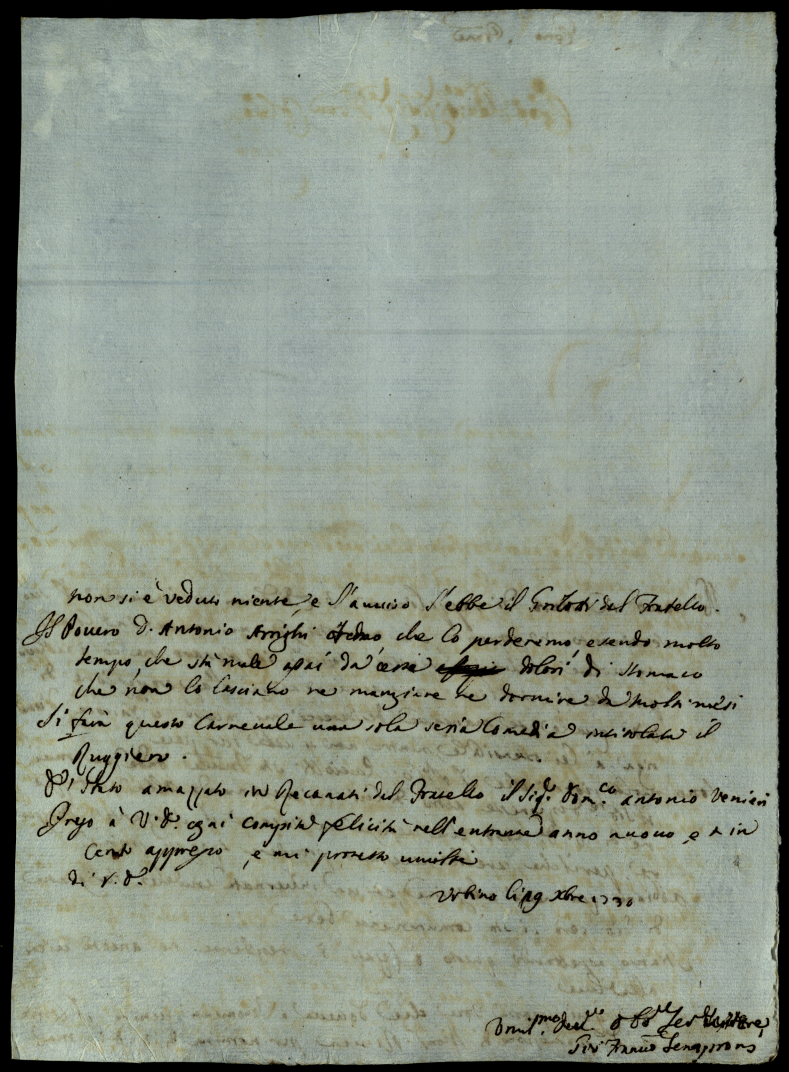 non si è veduto niente, e l'auuiso l'ebbe il dal Fratello.
Il Pouero D. Antonio Arrighi che lo perderemo, esendo molto
tempo, che stà male asai da dolori di stomaco
che non lo lasciano ne mangiare ne dormire da molti mesi
Si farà questo Carneuale una sola seria Comedia intitolata il
Ruggiero.
È stato amazzato in Recanati dal Fratello il Sig.r Dom.co antonio Venieri
Prego à V.S. ogni compita felicità nell'entrante anno nuouo, e in
Cento appresso, e mi protesto
di V.S.
Urbino li 29 Xbre 1730
Umil.mo
Pier Franc.o